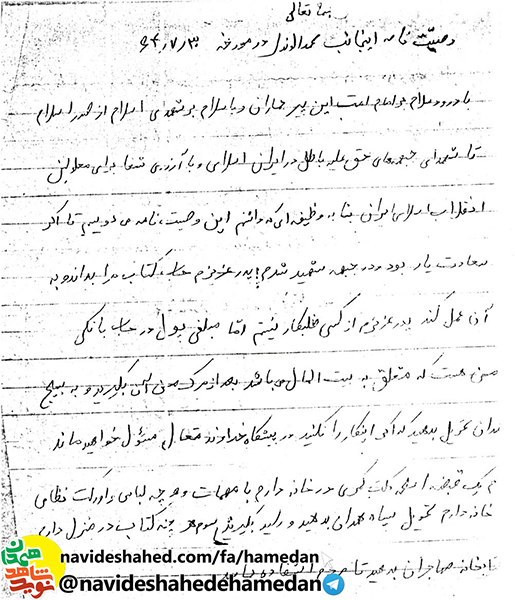 بسمه تعالی
وصیت نامه اینجانب محمد الوندی در مورخه ۶۴/۷/۳۰
با درود و سلام بر امام امت این پیر جماران و با سلام بر شهدای اسلام از صدر اسلام
تا شهدای جبهه‌های حق علیه باطل در ایران اسلامی و با آرزوی شفا برای معلولین
انقلاب اسلامی ایران بنا به وظیفه‌ای که دانم این وصیت نامه می‌نویسم تا اگر
سعادت یار بود و در جبهه شهید شدم پدر عزیزم حساب کتاب مرا بداند و به
آن عمل کند پدر عزیزم از کسی طلبکار نیستم اما مبلغی پول در حساب بانکی
من هست که متعلق به بیت المال می‌باشد بعد از مرگ من آن بگیرید و به بسیج
تحویل بدهید که اگر اینکار را نکنید در پیشگاه خداوند متعال مسئول خواهید ماند
یک قبضه اسلحه کلت کمری در خانه دارم با مهمات و هر چه لباس و ادوات نظامی
خانه دارم تحویل سپاه همدان بدهید و رسید بگیرید سوم هر چه کتاب در منزل دارم
بدهید تا مردم استفاده
navideshahed.com/fa/hamedan
@navideshahedehamedan
نوید شاهد
همدان